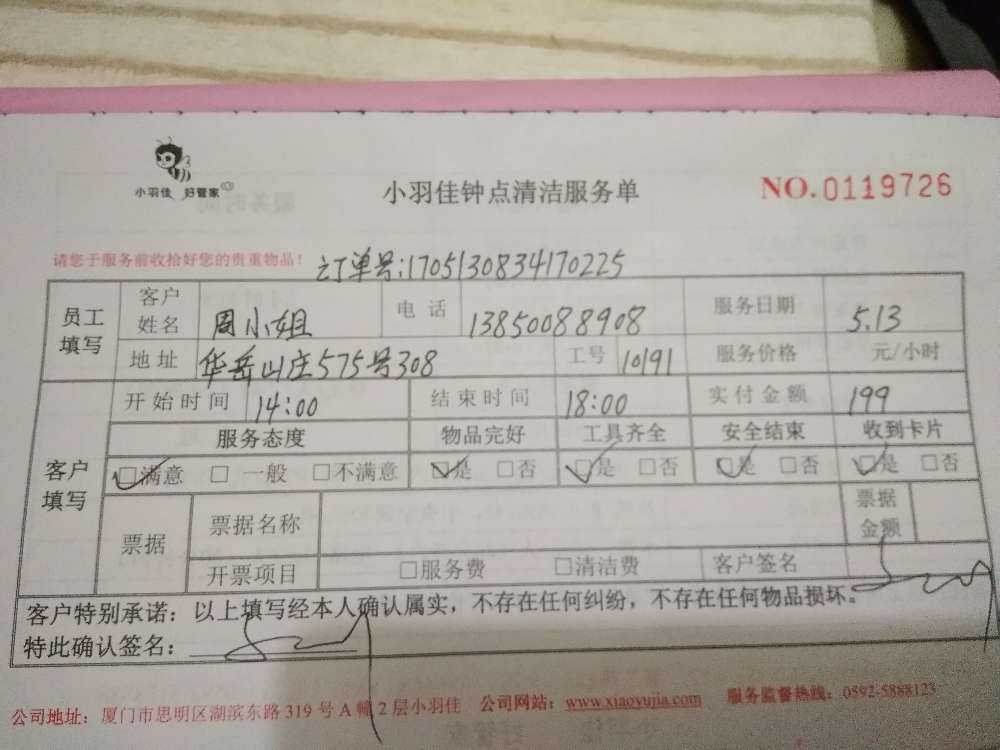 小羽佳 好管家
小羽佳钟点清洁服务单
NO.0119726
请您于服务前收拾好您的贵重物品!
订单号:1705130834170225
员工填写 客户姓名 周小姐 电话 13850088908 服务日期 5.13
地址 华岳山庄575号308 工号 10191 服务价格 元/小时
客户填写 开始时间 14:00 结束时间 18:00 实付金额 199
服务态度 物品完好 工具齐全 安全结束 收到卡片
☑满意 □一般 □不满意 ☑是 □否 ☑是 □否 ☑是 □否 ☑是 □否
票据 票据名称 票据金额
开票项目 □服务费 □清洁费 客户签名
客户特别承诺：以上填写经本人确认属实，不存在任何纠纷，不存在任何物品损坏。
特此确认签名：
公司地址：厦门市思明区湖滨东路319号A幢2层小羽佳 公司网站：www.xiaoyujia.com 服务监督热线：0592-5888123